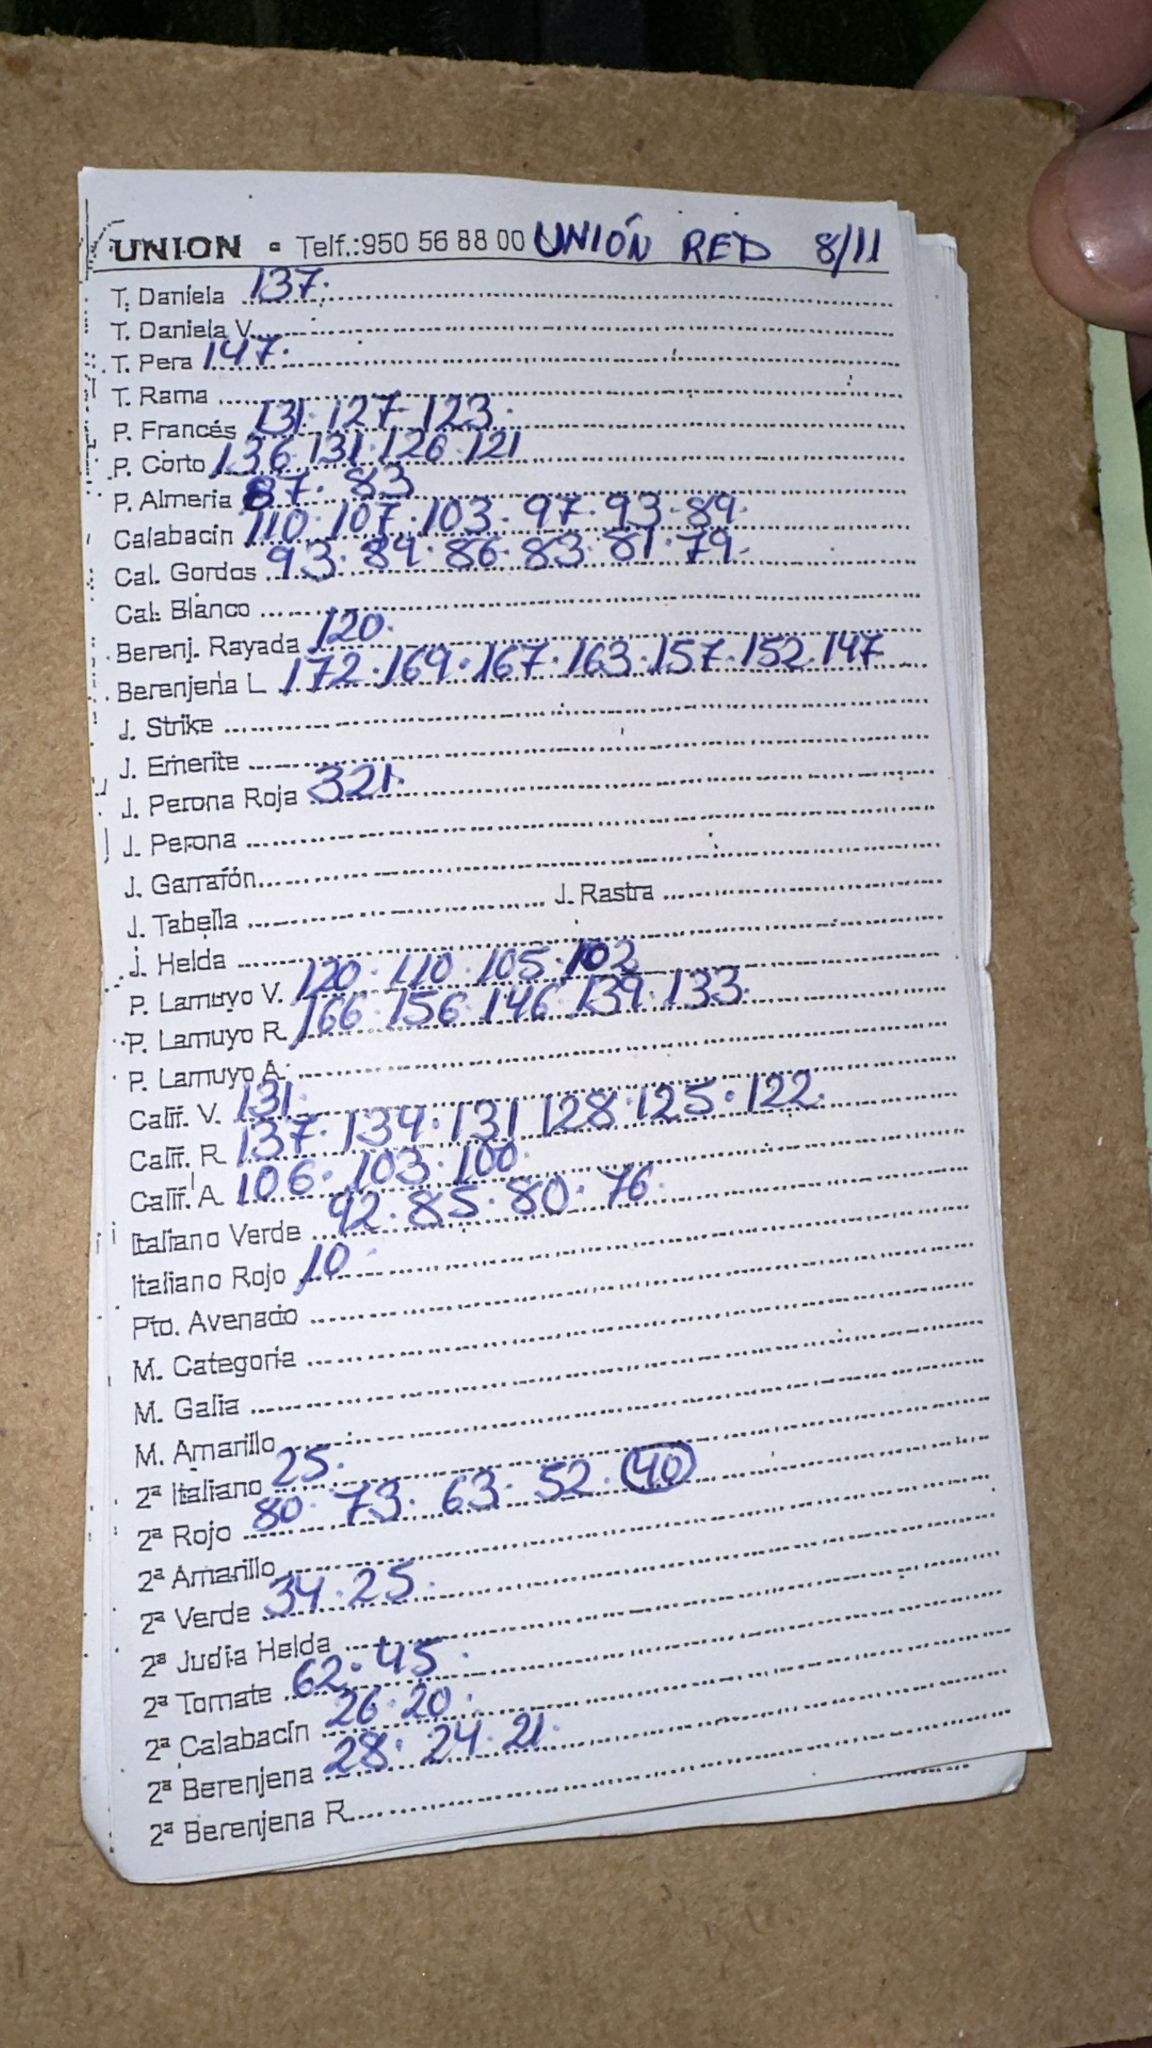 UNION - Telf.:950 56 88 00 UNIÓN RED 8/11
T. Daniela 137.
T. Daniela V.
T. Pera 147.
T. Rama
P. Francés 131. 127- 123.
P. Corto 136 131. 126. 121
P. Almeria 87. 83
Calabacín 110. 107. 103. 97. 93. 89.
Cal. Gordos 93. 89. 86. 83. 81. 79.
Cal. Blanco
Berenj. Rayada 120.
Berenjena L 172. 169. 167. 163. 157. 152. 147
J. Strike
J. Emerite
J. Perona Roja 321.
J. Perona
J. Garrafón
J. Tabella J. Rastra
J. Helda
P. Lamuyo V. 120. 110. 105. 102
P. Lamuyo R. 166. 156. 146. 139. 133.
P. Lamuyo A.
Calif. V. 131.
Calif. R. 137. 134. 131 128. 125. 122.
Calif. A. 106. 103. 100.
Italiano Verde 92. 85. 80. 76.
Italiano Rojo 10.
Pto. Avenado
M. Categoría
M. Galia
M. Amarillo
2ª Italiano 25.
2ª Rojo 80. 73. 63. 52. 40
2ª Amarillo
2ª Verde 34. 25.
2ª Judía Helda
2ª Tomate 62. 45.
2ª Calabacín 26. 20.
2ª Berenjena 28. 24. 21.
2ª Berenjena R.